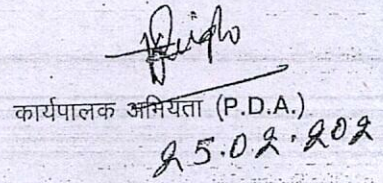 कार्यपालक अभियंता (P.D.A.)
25.02.202